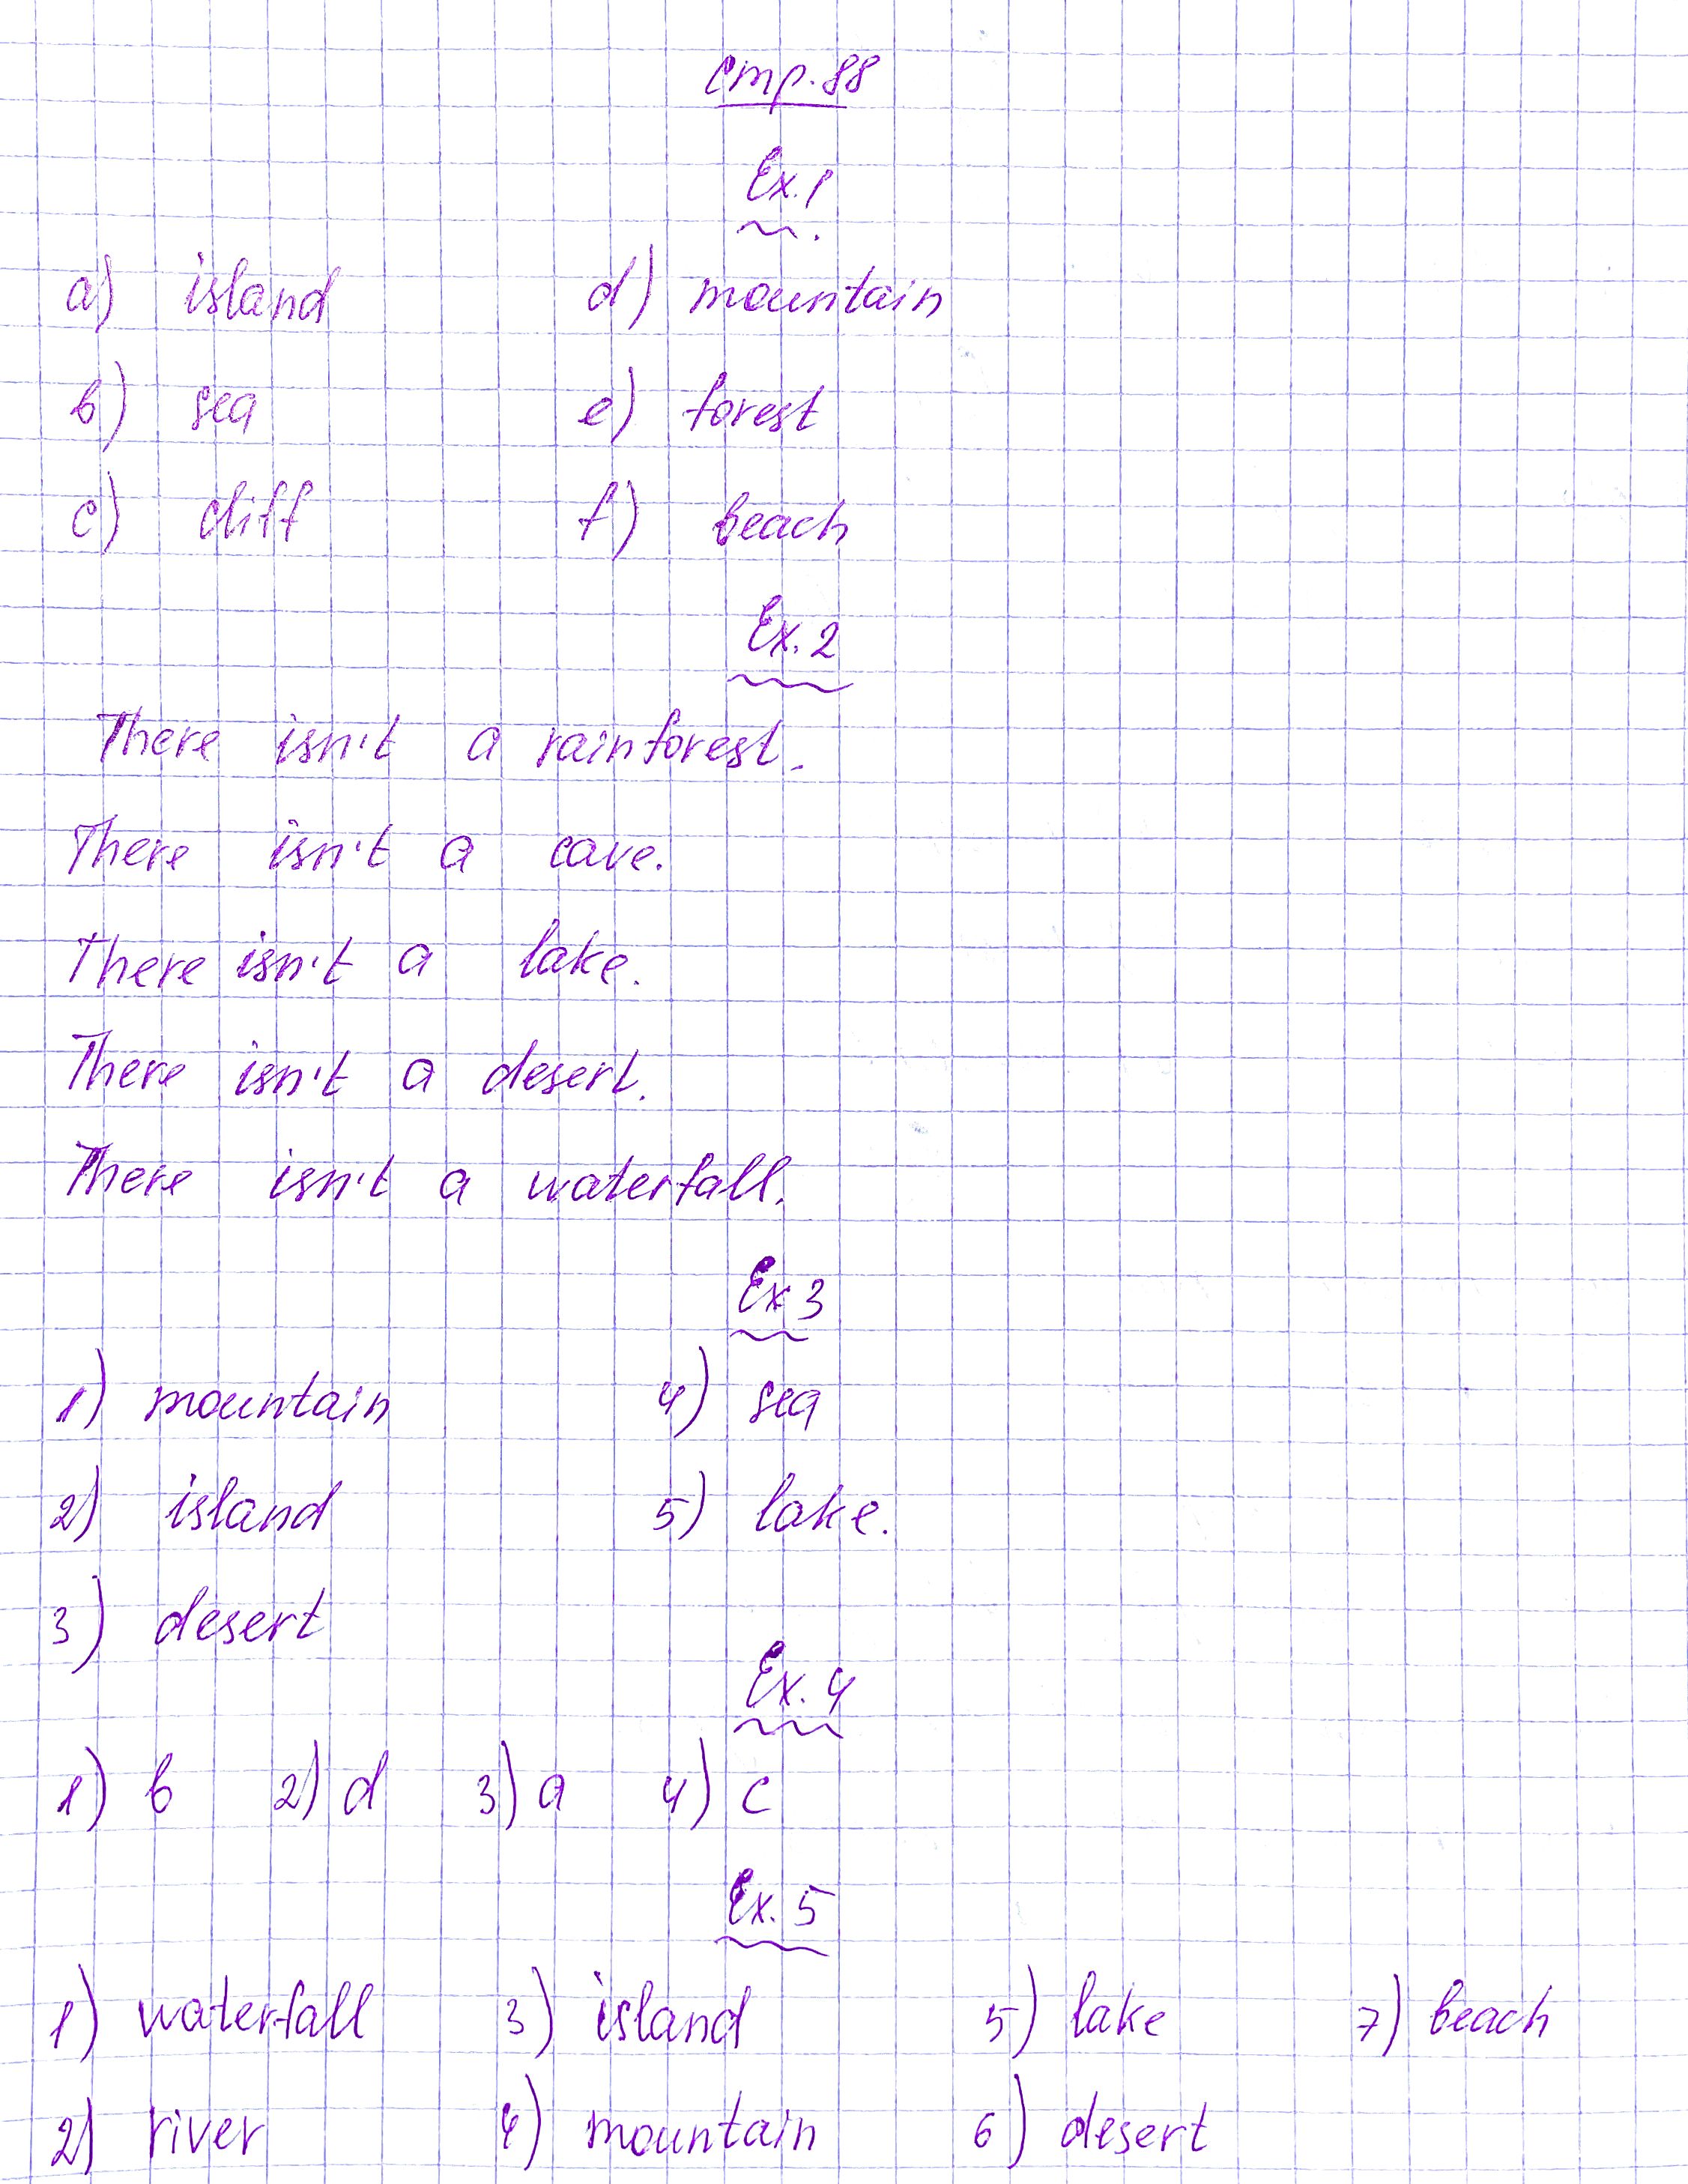 стр. 88
Ex. 1
a) island d) mountain
b) sea e) forest
c) cliff f) beach
Ex. 2
There isn't a rainforest.
There isn't a cave.
There isn't a lake.
There isn't a desert.
There isn't a waterfall.
Ex 3
1) mountain 4) sea
2) island 5) lake.
3) desert
Ex. 4
1) b 2) d 3) a 4) c
Ex. 5
1) waterfall 3) island 5) lake 7) beach
2) river 4) mountain 6) desert